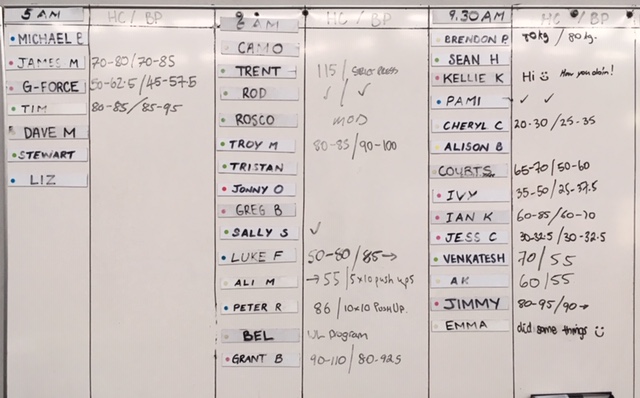 5 AM HC / BP
MICHAEL B
JAMES M 70-80/70-85
G-FORCE 50-62.5/45-57.5
TIM 80-85/85-95
DAVE M
STEWART
LIZ
AM HC / BP
CAMO
TRENT 115/
ROD ✓ / ✓
ROSCO MOD
TROY M 80-85/90-100
TRISTAN
JONNY O
GREG B
SALLY S ✓
LUKE F 50-80/85→
ALI M →55/5x10 push ups
PETER R 86/10x10 Push Up.
BEL UL Program
GRANT B 90-110/80-92.5
9.30 AM HC / BP
BRENDON P 70kg/80kg.
SEAN H
KELLIE K Hi ☺ How you doin!
PAMI ✓ ✓
CHERYL C 20-30/25-35
ALISON B
COURTS 65-70/50-60
IVY 35-50/25-37.5
IAN K 60-85/60-70
JESS C 30-32.5/30-32.5
VENKATESH 70/55
AK 60/55
JIMMY 80-95/90→
EMMA did some things ☺